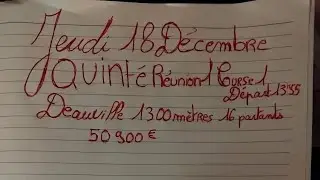 Jeudi 18 Décembre
Quinté Réunion 1 Curse 1
Départ 13"55
Deauville 1300 mètres 16 partants
50 900 €